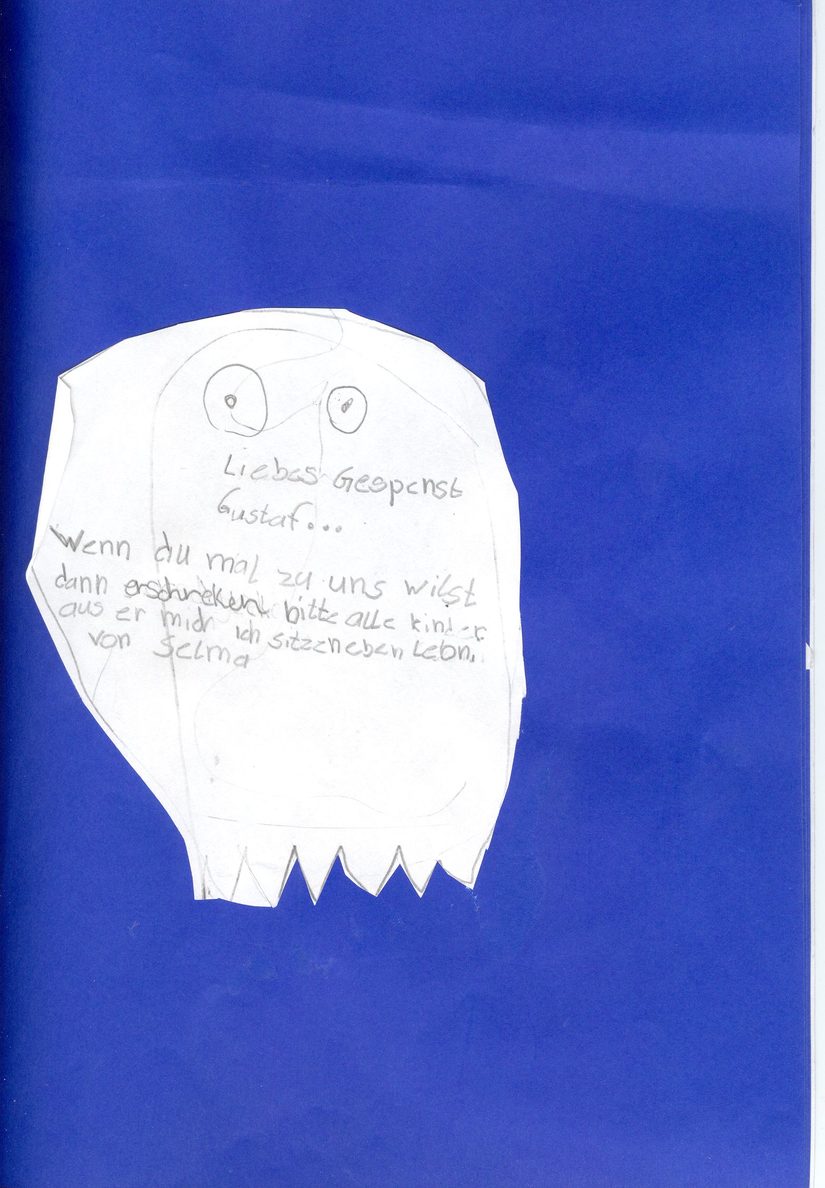 Liebes Gespenst
Gustaf...
Wenn du mal zu uns wilst
dann erschreken bitte alle kinder
aus er mich ich sitze neben Leoni
von Selma